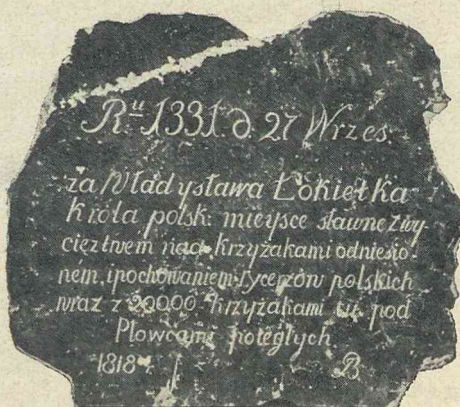 Rᵘ 1331. d. 27 Wrzes.
za Władysława Łokietka
króla polsk: mieysce sławne zwy-
cięztwem nad krzyżakami odniesio-
nem, i pochowaniem rycerzów polskich
wraz z 20000 krzyżakami tu pod
Płowcami poległych.
1818 r. B